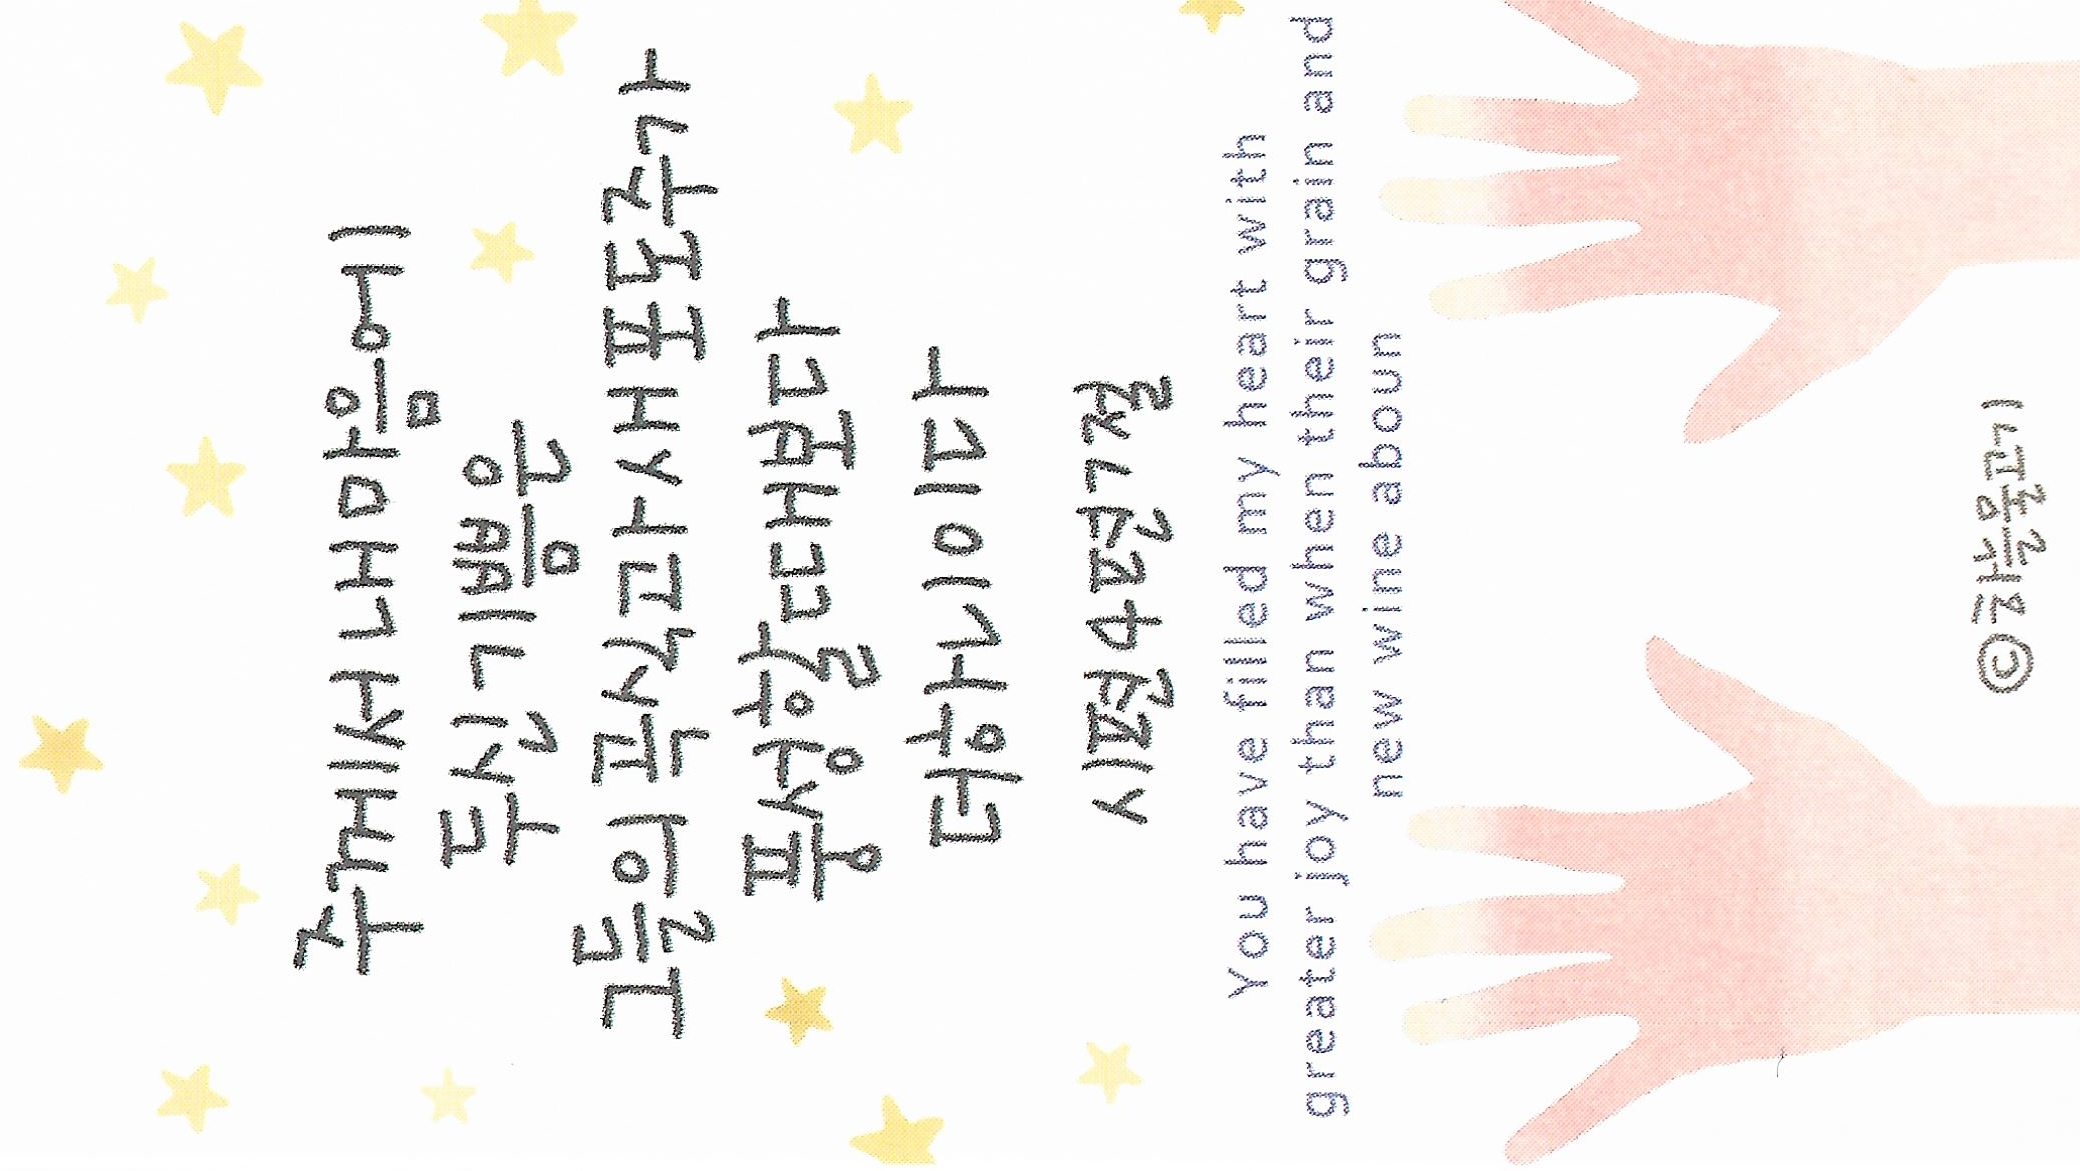 주께서 내 마음에
두신 기쁨은
그들의 곡식과 새 포도주가
풍성할 때보다
더하니이다
시편 4편 7절
You have filled my heart with
greater joy than when their grain and
new wine aboun
©하늘물고기